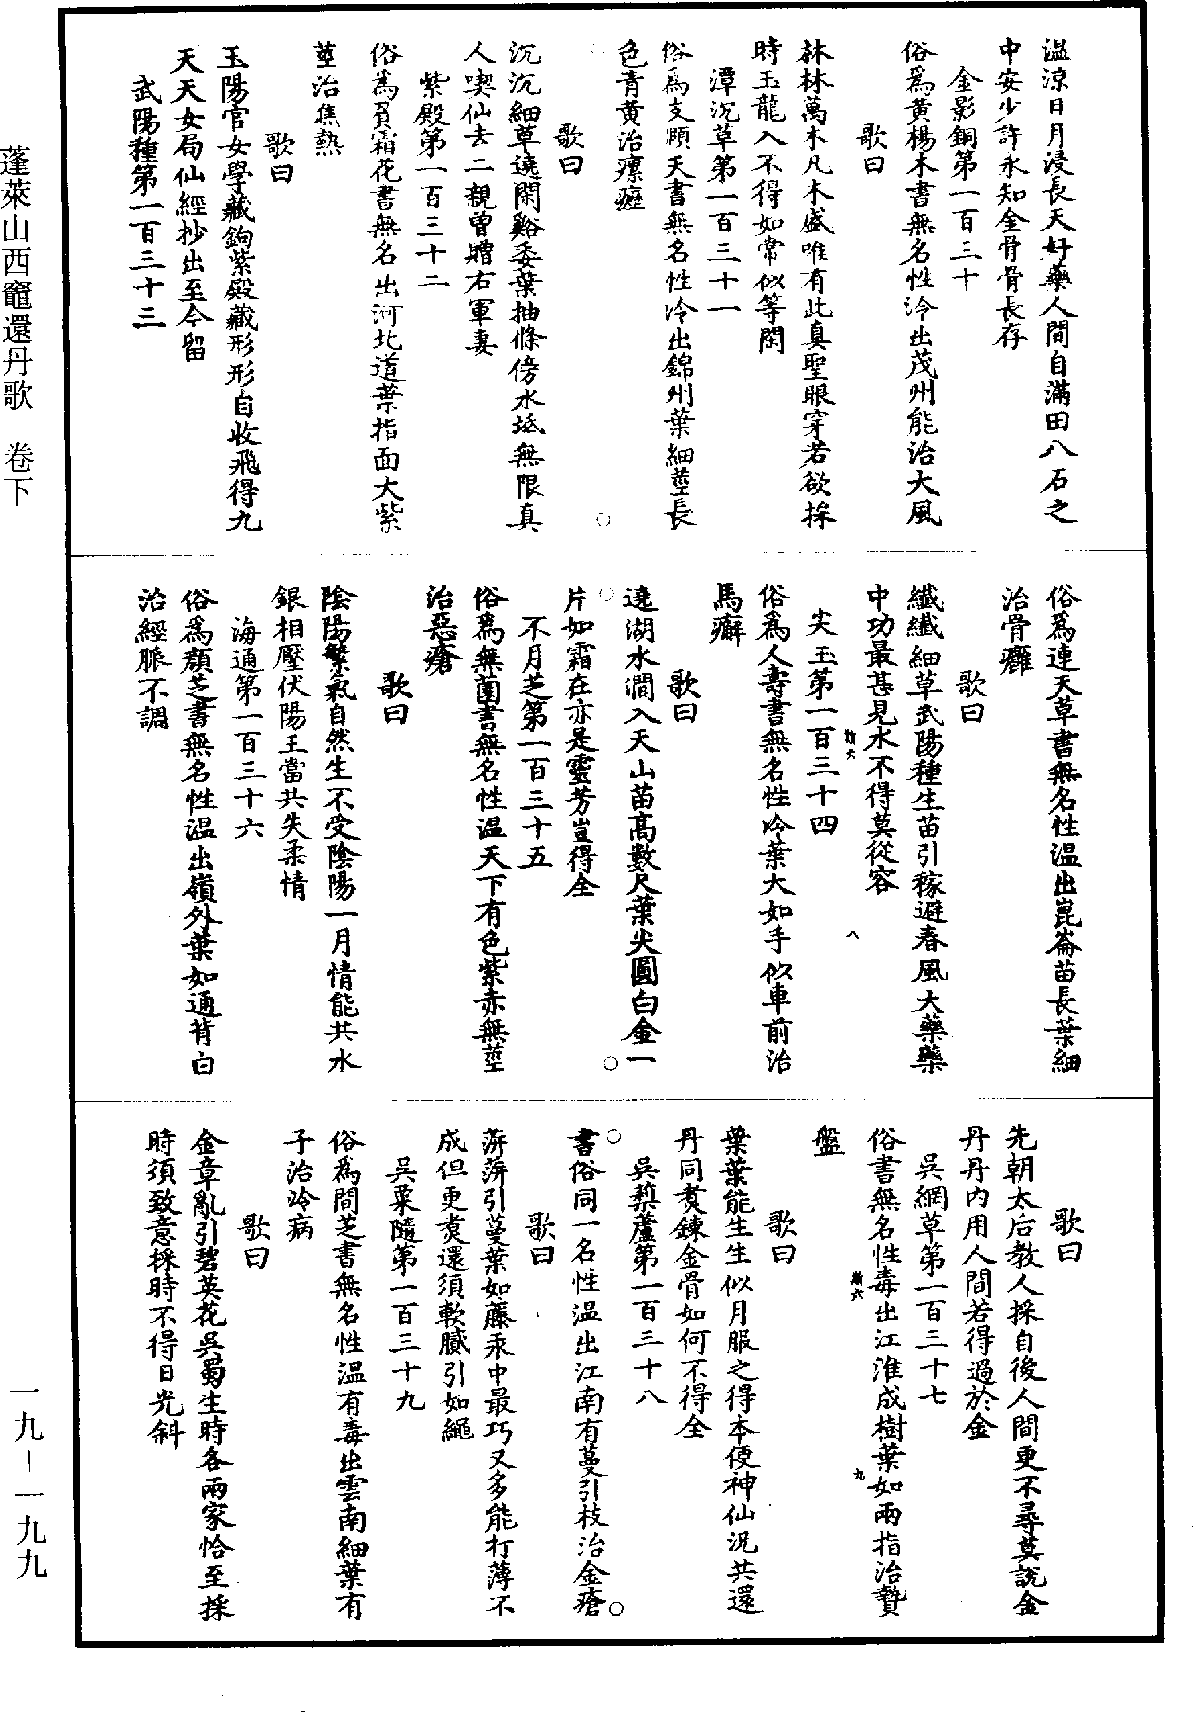 溫涼日月浸長天好藥人間自滿田八石之
中安少許永知金骨骨長存
金影銅第一百三十
俗為黃楊木書無名性冷出茂州能治大風
歌曰
林林萬木凡木盛唯有此真聖眼穿若欲採
時玉龍入不得如常似等閑
潭沉草第一百三十一
俗為支頤天書無名性冷出錦州葉細莖長
色青黃治瘰癧
歌曰
沉沉細草遶閑谿委葉抽條傍水坻無限真
人喫仙去二親曾贈右軍妻
紫殿第一百三十二
俗為負霜花書無名出河北道葉指面大紫
莖治焦熱
歌曰
玉陽官女學藏鉤紫殿藏形形自收飛得九
天天女局仙經抄出至今留
武陽種第一百三十三
俗為連天草書無名性溫出崑崙苗長葉細
治骨癰
歌曰
纖纖細草武陽種生苗引稼避春風大藥藥
中功最甚見水不得莫從容
尖玉第一百三十四
俗為人壽書無名性冷葉大如手似車前治
馬癬
歌曰
遶湖水澗入天山苗高數尺葉尖圓白金一
片如霜在亦是靈芳豈得全
不月芝第一百三十五
俗為無菌書無名性溫天下有色紫赤無莖
治惡瘡
歌曰
陰陽繁氣自然生不受陰陽一月情能共水
銀相壓伏陽王當共失柔情
海通第一百三十六
俗為顏芝書無名性溫出嶺外葉如通背白
治經脈不調
歌曰
先朝太后教人採自後人間更不尋莫說金
丹丹內用人間若得過於金
吳網草第一百三十七
俗書無名性毒出江淮成樹葉如兩指治贊
盤
歌曰
葉葉能生生似月服之得本便神仙況共還
丹同煑鍊金骨如何不得全
吳藜蘆第一百三十八
書俗同一名性溫出江南有蔓引枝治金瘡
歌曰
蓱蓱引蔓葉如藤汞中最巧又多能打薄不
成但更煑還須軟膩引如繩
吳粟隨第一百三十九
俗為間芝書無名性溫有毒出雲南細葉有
子治冷病
歌曰
金章亂引碧英花吳蜀生時各兩家恰至採
時須致意採時不得日光斜
蓬萊山西竈還丹歌 卷下
一九－一九九